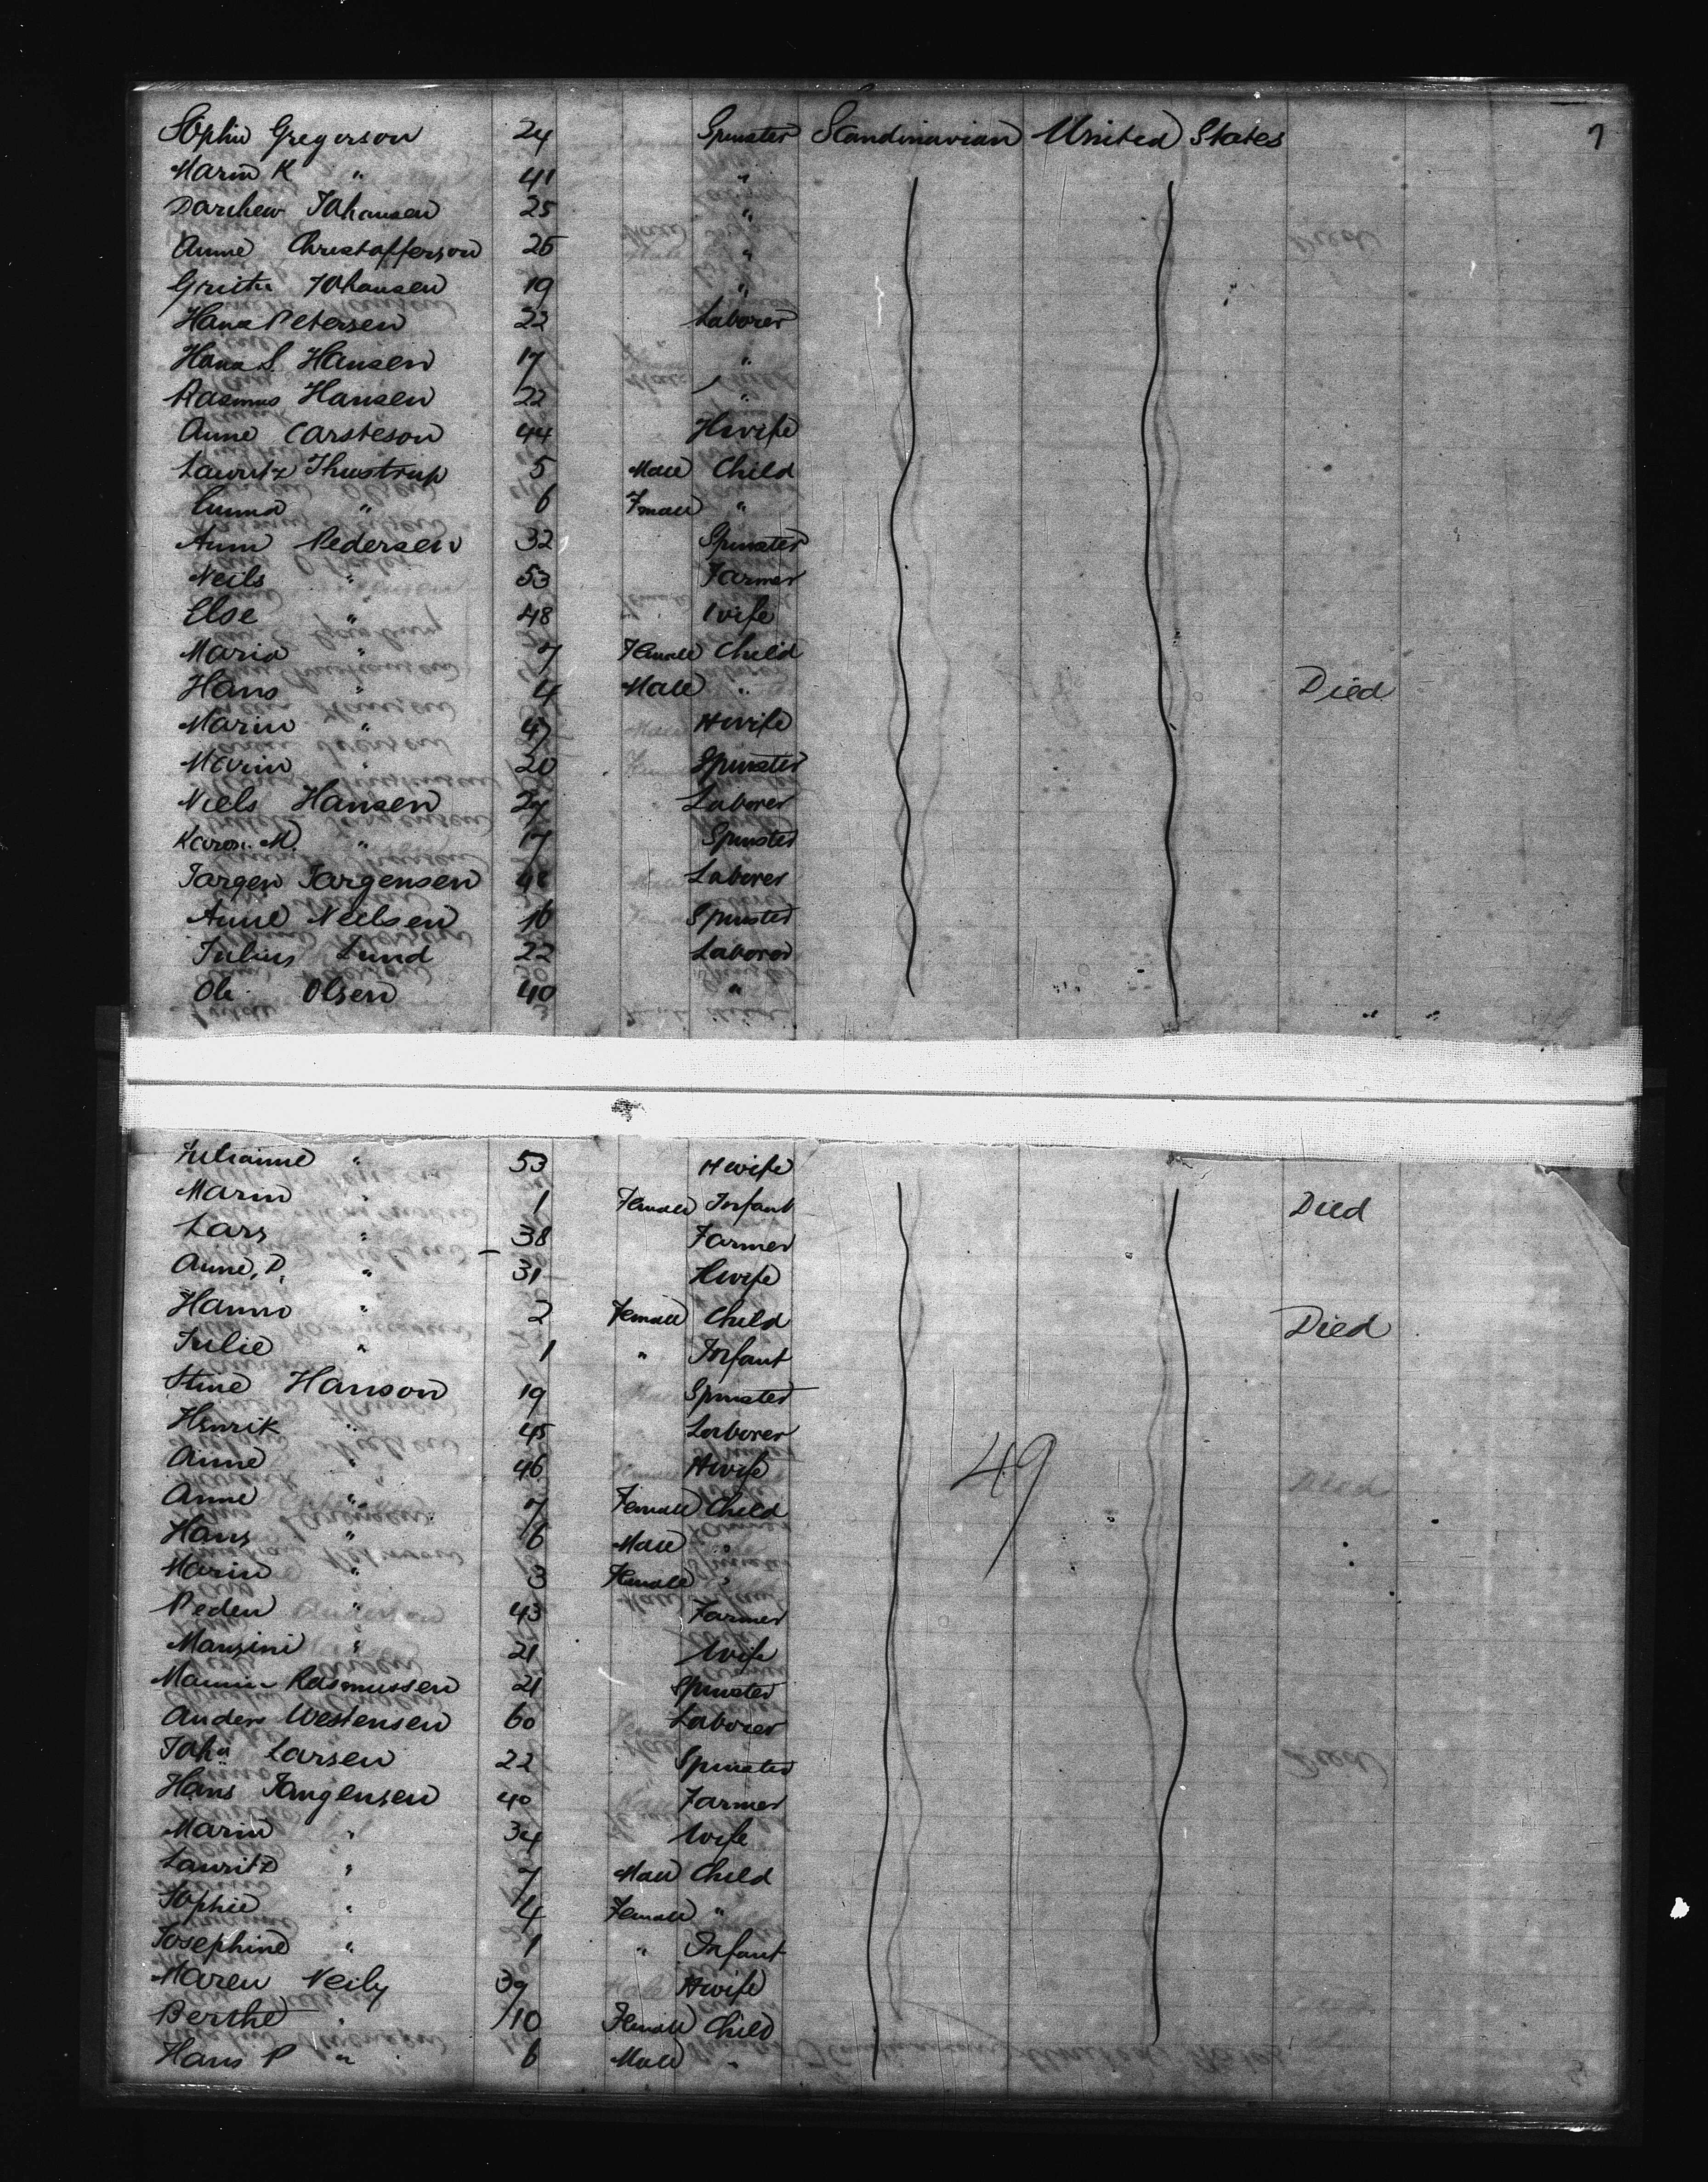 Sophie Gregerson 24 Spinster Scandinavian United States 7
Marin K " 41 "
Johansen 25 "
Anne Christofferson 25 "
Johansen 19 "
Hans Petersen 22 Laborer
Hans S. Hansen 17 "
Rasmus Hansen 22 "
Anne Carsteson 44 H wife
Lauritz Thustrup 5 Male Child
Emma " 6 Fmale "
Ann Pedersen 32 Spinster
Neils " 53 Farmer
Else " 48 Wife
Maria " 7 Female Child
Hans " 4 Male " Died
Marin " 47 H wife
Marin " 20 Spinster
Niels Hansen 24 Laborer
Karen M. " 17 Spinster
Jorgen Jorgensen Laborer
Anne Neelsen 16 Spinster
Julius Lund 22 Laborer
Ole Olsen 40 "
Julianne " 53 H wife
Marin " 1 Female Infant Died
Lars " 38 Farmer
Anne, P, " 31 H wife
Hanne " 2 Female Child Died
Julie " 1 " Infant
Stine Hanson 19 Spinster
Henrik " 45 Laborer
Anne " 46 H wife
49
Anne " 7 Female Child
Hans " 6 Male "
Marin " 3 Female "
Peden " 43 Farmer
" 21 Wife
Rasmussen 21 Spinster
Anders Westensen 60 Laborer
Larsen 22 Spinster
Hans Jangensen 40 Farmer
Marin " 34 Wife
Lauritz " 7 Male Child
Sophie " 4 Female "
Josephine " 1 " Infant
Maren Neily 39 H wife
Berthe " 10 Female Child
Hans P " 6 Male "